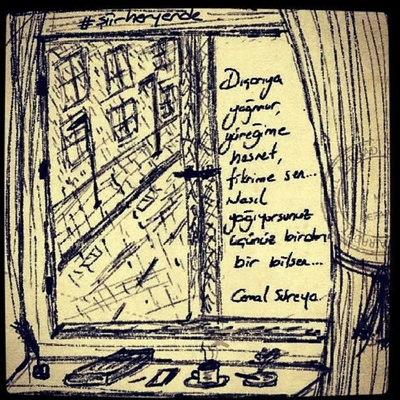 #şiirheryerde
Dışarıya
yağmur,
yüreğime
hasret,
fikrime sen...
Nasıl
yağıyorsunuz
üçünüz birden
bir bilsen...
Cemal Süreya